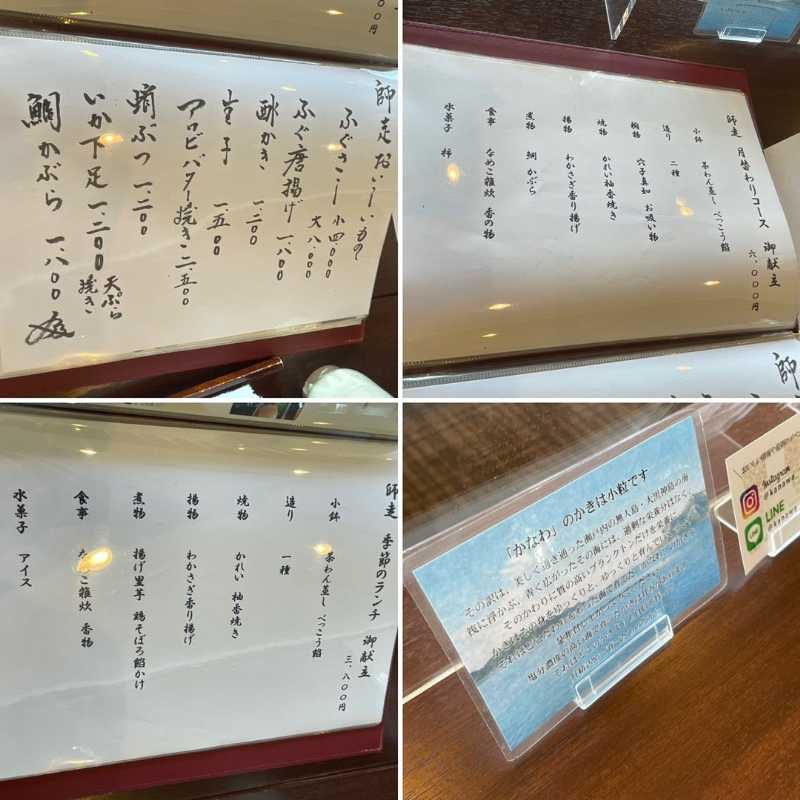 師走 おいしいもの
ふぐさし 小 四、〇〇〇
大 八、〇〇〇
ふぐ唐揚げ 一、八〇〇
酢かき 一、二〇〇
生子 一、五〇〇
アワビバター焼き 二、五〇〇
一、二〇〇
いか下足 一、二〇〇
天ぷら
焼き
鯛かぶら 一、八〇〇
師走 月替わりコース 御献立
六、〇〇〇円
小鉢 茶わん蒸し べっこう餡
造り 二種
椀物 穴子真知 お吸い物
焼物 かれい柚香焼き
揚物 わかさぎ香り揚げ
煮物 鯛かぶら
食事 なめこ雑炊 香の物
水菓子 柿
師
師走 季節のランチ 御献立
三、八〇〇円
小鉢 茶わん蒸し べっこう餡
造り 一種
焼物 かれい 柚香焼き
揚物 わかさぎ香り揚げ
煮物 揚げ里芋 鶏そぼろ餡かけ
食事 なめこ雑炊 香物
水菓子 アイス
「かなわ」のかきは小粒です
その訳は、美しく透き通った瀬戸内の無人島・大黒神島の海
筏に浮かぶ、青く広がったその海には、過剰な栄養分はなく
そのかわりに質の高いプランクトンだけを栄養に
かきはその身をゆっくりと、ゆっくりと育んで
Instagram
@kanawa_
LINE
@kanawa